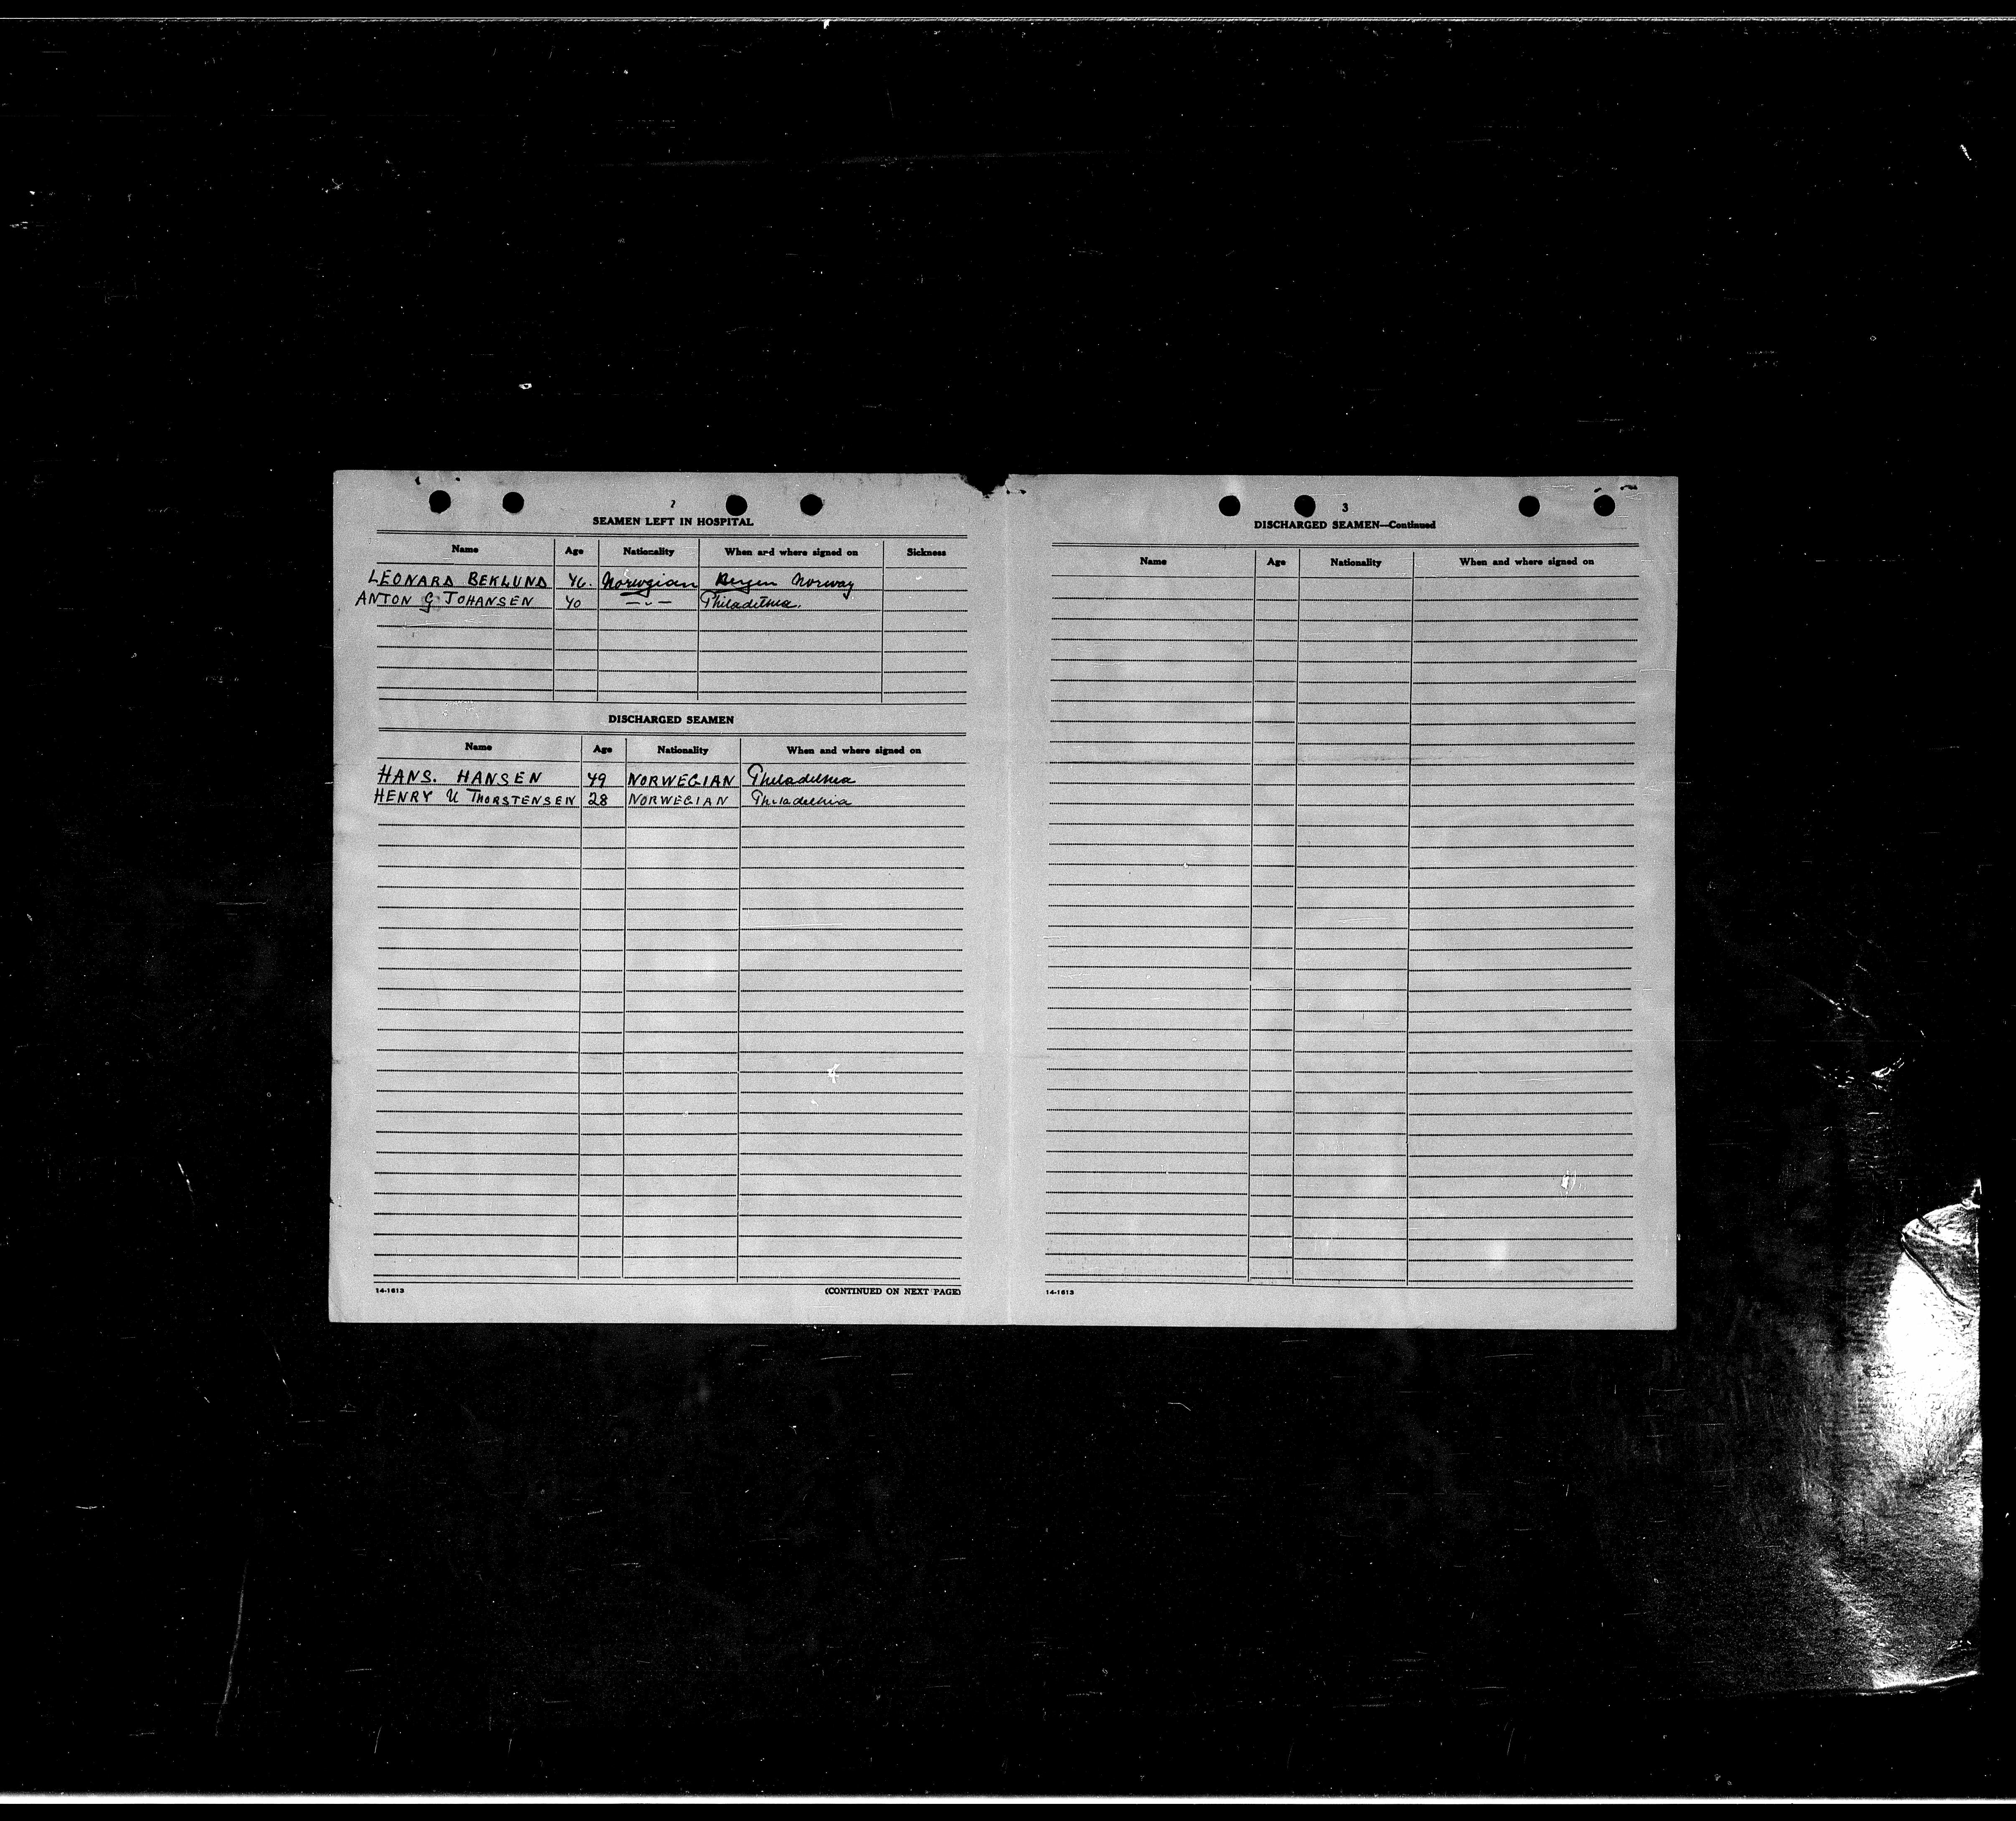 2
SEAMEN LEFT IN HOSPITAL
Name Age Nationality When and where signed on Sickness
LEONARD BEKLUND 46. Norwegian Bergen Norway
ANTON G JOHANSEN 40 —〃— Philadelhia.
DISCHARGED SEAMEN
Name Age Nationality When and where signed on
HANS. HANSEN 49 NORWEGIAN Philadelhia
HENRY U THORSTENSEN 28 NORWEGIAN Philadelhia
14-1613 (CONTINUED ON NEXT PAGE)
3
DISCHARGED SEAMEN—Continued
Name Age Nationality When and where signed on
14-1613